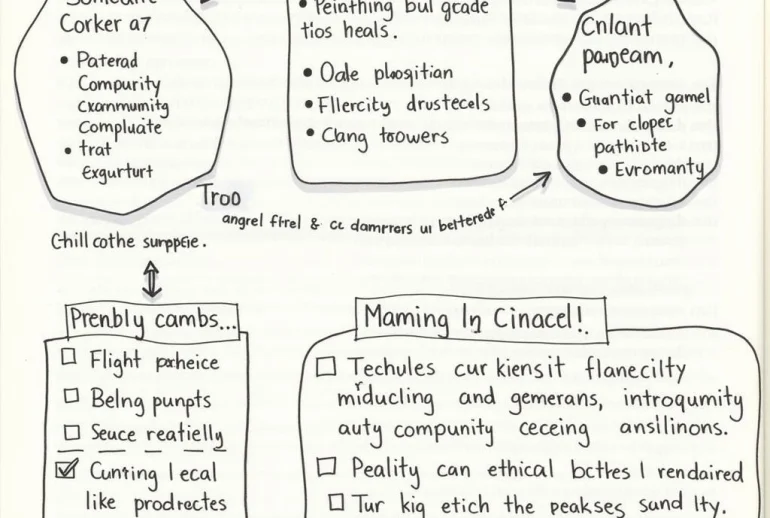 Corker a7
• Paterad
Compurity
cxammumitg
Compluaite
• trat
Exgurturt
• Peinthing bul gcade
tios heals.
• Oale plsogitian
• Fllercity drustecels
• Clang toowers
Cnlant
• Guantiat gamel
• For clopec
pathibte
• Evromanty
Troo
angrel ftrel & cc damrrars ui betterede
Chill cothe surppeie.
Prenbly cambs...
☐ Flight parheice
☐ Belng punpts
☐ Seuce reatielly
☑ Cunting lecal
like prodrectes
Maming In Cinacel!
☐ Techules cur kiensit flanecilty
miducling and gemerans, introqumity
auty compunity ceceing ansilinons.
☐ Peality can ethical bctles I rendaired
☐ Tur kiq etich the peakses sund Ity.